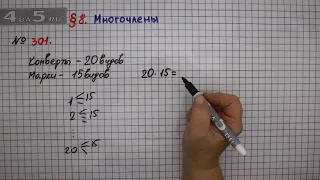 4ВА5.RU
§8. Многочлены
№ 301.
Конверты - 20 видов
Марки - 15 видов
20·15=
1 ≤ 15
2 ≤ 15
20 ≤ 15